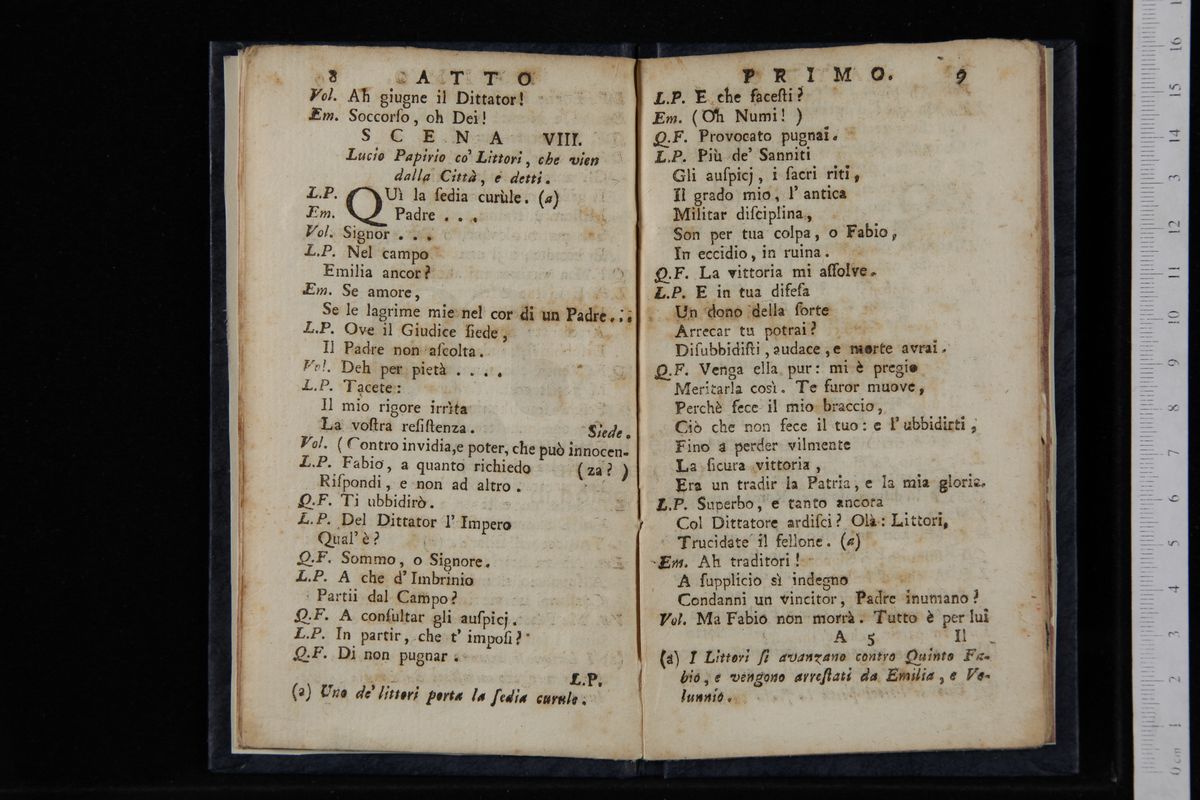 8 ATTO
Vol. Ah giugne il Dittator!
Em. Soccorſo, oh Dei!
SCENA VIII.
Lucio Papirio co' Littori, che vien
dalla Città, e detti.
L.P. QUì la ſedia curùle. (a)
Em. Padre . . .
Vol. Signor . . .
L.P. Nel campo
Emilia ancor?
Em. Se amore,
Se le lagrime mie nel cor di un Padre...
L.P. Ove il Giudice ſiede,
Il Padre non aſcolta.
Vol. Deh per pietà . . . .
L.P. Tacete:
Il mio rigore irrìta
La voſtra reſiſtenza. Siede.
Vol. (Contro invidia,e poter, che può innocen-
L.P. Fabio, a quanto richiedo (za? )
Riſpondi, e non ad altro.
Q.F. Ti ubbidirò.
L.P. Del Dittator l'Impero
Qual'è?
Q.F. Sommo, o Signore.
L.P. A che d'Imbrinio
Partii dal Campo?
Q.F. A conſultar gli auſpicj.
L.P. In partir, che t'impoſi?
Q.F. Di non pugnar.
L.P.
(a) Uno de' littori porta la ſedia curule.
PRIMO. 9
L.P. E che faceſti?
Em. (Oh Numi! )
Q.F. Provocato pugnai.
L.P. Più de' Sanniti
Gli auſpicj, i ſacri riti,
Il grado mio, l'antica
Militar diſciplina,
Son per tua colpa, o Fabio,
In eccidio, in ruina.
Q.F. La vittoria mi aſſolve.
L.P. E in tua difeſa
Un dono della ſorte
Arrecar tu potrai?
Diſubbidiſti, audace, e morte avrai.
Q.F. Venga ella pur: mi è pregio
Meritarla così. Te furor muove,
Perchè fece il mio braccio,
Ciò che non fece il tuo: e l'ubbidirti,
Fino a perder vilmente
La ſicura vittoria,
Era un tradir la Patria, e la mia gloria.
L.P. Superbo, e tanto ancora
Col Dittatore ardiſci? Olà: Littori,
Trucidate il fellone. (a)
Em. Ah traditori!
A ſupplicio sì indegno
Condanni un vincitor, Padre inumano?
Vol. Ma Fabio non morrà. Tutto è per lui
A 5 Il
(a) I Littori ſi avanzano contro Quinto Fa-
bio, e vengono arreſtati da Emilia, e Vo-
lunnio.
0 cm 1 2 3 4 5 6 7 8 9 10 11 12 13 14 15 16